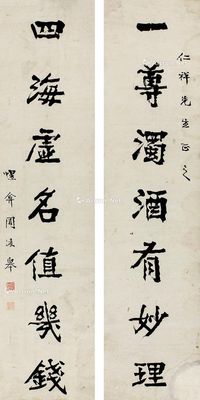 仁祥先生正之
一尊濁酒有妙理
四海虛名值幾錢